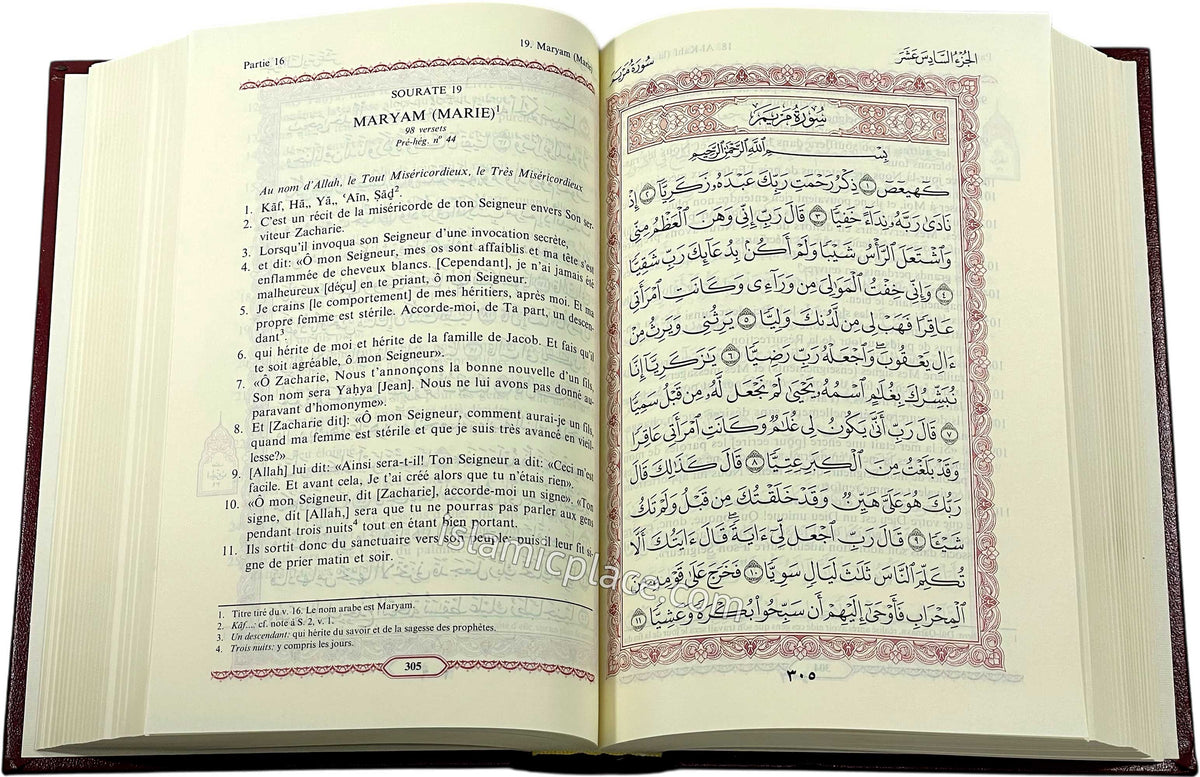 Partie 16
19. Maryam (Marie)
SOURATE 19
MARYAM (MARIE)¹
98 versets
Pré-hég. nº 44
Au nom d'Allah, le Tout Miséricordieux, le Très Miséricordieux
1. Kāf, Hā,, Yā,, ʿAīn, Ṣāḍ².
2. C'est un récit de la miséricorde de ton Seigneur envers Son ser-
viteur Zacharie.
3. Lorsqu'il invoqua son Seigneur d'une invocation secrète,
4. et dit: «Ô mon Seigneur, mes os sont affaiblis et ma tête s'est
enflammée de cheveux blancs. [Cependant], je n'ai jamais été
malheureux [déçu] en te priant, ô mon Seigneur.
5. Je crains [le comportement] de mes héritiers, après moi. Et ma
propre femme est stérile. Accorde-moi, de Ta part, un descen-
dant³.
6. qui hérite de moi et hérite de la famille de Jacob. Et fais qu'il
te soit agréable, ô mon Seigneur».
7. «Ô Zacharie, Nous t'annonçons la bonne nouvelle d'un fils,
Son nom sera Yaḥya [Jean]. Nous ne lui avons pas donné au-
paravant d'homonyme».
8. Et [Zacharie dit]: «Ô mon Seigneur, comment aurai-je un fils,
quand ma femme est stérile et que je suis très avancé en vieil-
lesse?»
9. [Allah] lui dit: «Ainsi sera-t-il! Ton Seigneur a dit: «Ceci m'est
facile. Et avant cela, Je t'ai créé alors que tu n'étais rien».
10. «Ô mon Seigneur, dit [Zacharie], accorde-moi un signe». «Ton
signe, dit [Allah,] sera que tu ne pourras pas parler aux gens
pendant trois nuits⁴ tout en étant bien portant.
11. Ils sortit donc du sanctuaire vers son peuple; puis il leur fit si-
gne de prier matin et soir.
1. Titre tiré du v. 16. Le nom arabe est Maryam.
2. Kāf...: cf. note à S. 2, v. 1.
3. Un descendant: qui hérite du savoir et de la sagesse des prophètes.
4. Trois nuits: y compris les jours.
305
الجزء السادس عشر
سورة مريم
سُورَةُ مَرْيَمَ
بِسْمِ اللَّهِ الرَّحْمَٰنِ الرَّحِيمِ
كٓهيعٓصٓ ١ ذِكْرُ رَحْمَتِ رَبِّكَ عَبْدَهُۥ زَكَرِيَّآ ٢ إِذْ
نَادَىٰ رَبَّهُۥ نِدَآءً خَفِيًّا ٣ قَالَ رَبِّ إِنِّى وَهَنَ ٱلْعَظْمُ مِنِّى
وَٱشْتَعَلَ ٱلرَّأْسُ شَيْبًا وَلَمْ أَكُنۢ بِدُعَآئِكَ رَبِّ شَقِيًّا
٤ وَإِنِّى خِفْتُ ٱلْمَوَٰلِىَ مِن وَرَآءِى وَكَانَتِ ٱمْرَأَتِى
عَاقِرًا فَهَبْ لِى مِن لَّدُنكَ وَلِيًّا ٥ يَرِثُنِى وَيَرِثُ مِنْ
ءَالِ يَعْقُوبَ ۖ وَٱجْعَلْهُ رَبِّ رَضِيًّا ٦ يَٰزَكَرِيَّآ إِنَّا
نُبَشِّرُكَ بِغُلَٰمٍ ٱسْمُهُۥ يَحْيَىٰ لَمْ نَجْعَل لَّهُۥ مِن قَبْلُ سَمِيًّا
٧ قَالَ رَبِّ أَنَّىٰ يَكُونُ لِى غُلَٰمٌ وَكَانَتِ ٱمْرَأَتِى عَاقِرًا
وَقَدْ بَلَغْتُ مِنَ ٱلْكِبَرِ عِتِيًّا ٨ قَالَ كَذَٰلِكَ قَالَ
رَبُّكَ هُوَ عَلَىَّ هَيِّنٌ وَقَدْ خَلَقْتُكَ مِن قَبْلُ وَلَمْ تَكُ
شَيْـًٔا ٩ قَالَ رَبِّ ٱجْعَل لِّىٓ ءَايَةً ۚ قَالَ ءَايَتُكَ أَلَّا
تُكَلِّمَ ٱلنَّاسَ ثَلَٰثَ لَيَالٍ سَوِيًّا ١٠ فَخَرَجَ عَلَىٰ قَوْمِهِۦ مِنَ
ٱلْمِحْرَابِ فَأَوْحَىٰٓ إِلَيْهِمْ أَن سَبِّحُوا۟ بُكْرَةً وَعَشِيًّا ١١
٣٠٥
islamicplace.com